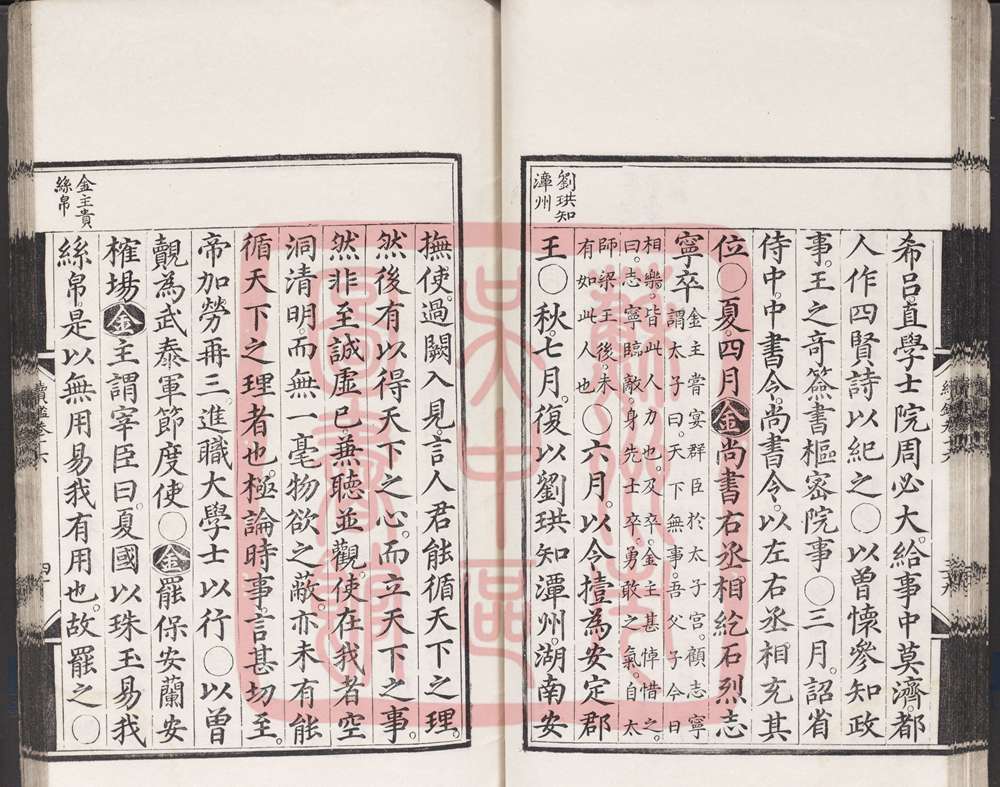 劉珙知
潭州
希呂直學士院周必大給事中莫濟都
人作四賢詩以紀之○以曾懷參知政
事王之奇簽書樞密院事○三月詔省
侍中中書令尚書令以左右丞相充其
位○夏四月金尚書右丞相紇石烈志
寧卒
金主嘗宴群臣於太子宮顧志寧
謂太子曰天下無事吾父子今日
相樂皆此人力也及卒金主甚悼惜之
曰志寧臨敵身先士卒勇敢之氣自太
師梁王後未
有如此人也
○六月以令㩀為安定郡
王○秋七月復以劉珙知潭州湖南安
撫使過闕入見言人君能循天下之理
然後有以得天下之心而立天下之事
然非至誠虛已兼聽並觀使在我者空
洞清明而無一毫物欲之蔽亦未有能
循天下之理者也極論時事言甚切至
帝加勞再三進職大學士以行○以曾
覿為武泰軍節度使○金罷保安蘭安
榷場金主謂宰臣曰夏國以珠玉易我
絲帛是以無用易我有用也故罷之○
金主貴
絲帛
續鑑卷十六